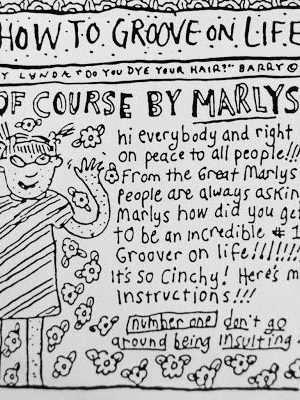 HOW TO GROOVE ON LIFE
Y LYNDA "DO YOU DYE YOUR HAIR?" BARRY ©
OF COURSE BY MARLYS
hi everybody and right
on peace to all people!!!
From the Great Marlys
People are always askin
Marlys how did you ge
to be an incredible #1
Groover on life!!!!!!!
It's so Cinchy! Here's m
instructions!!!
number one don't go
around being insulting.